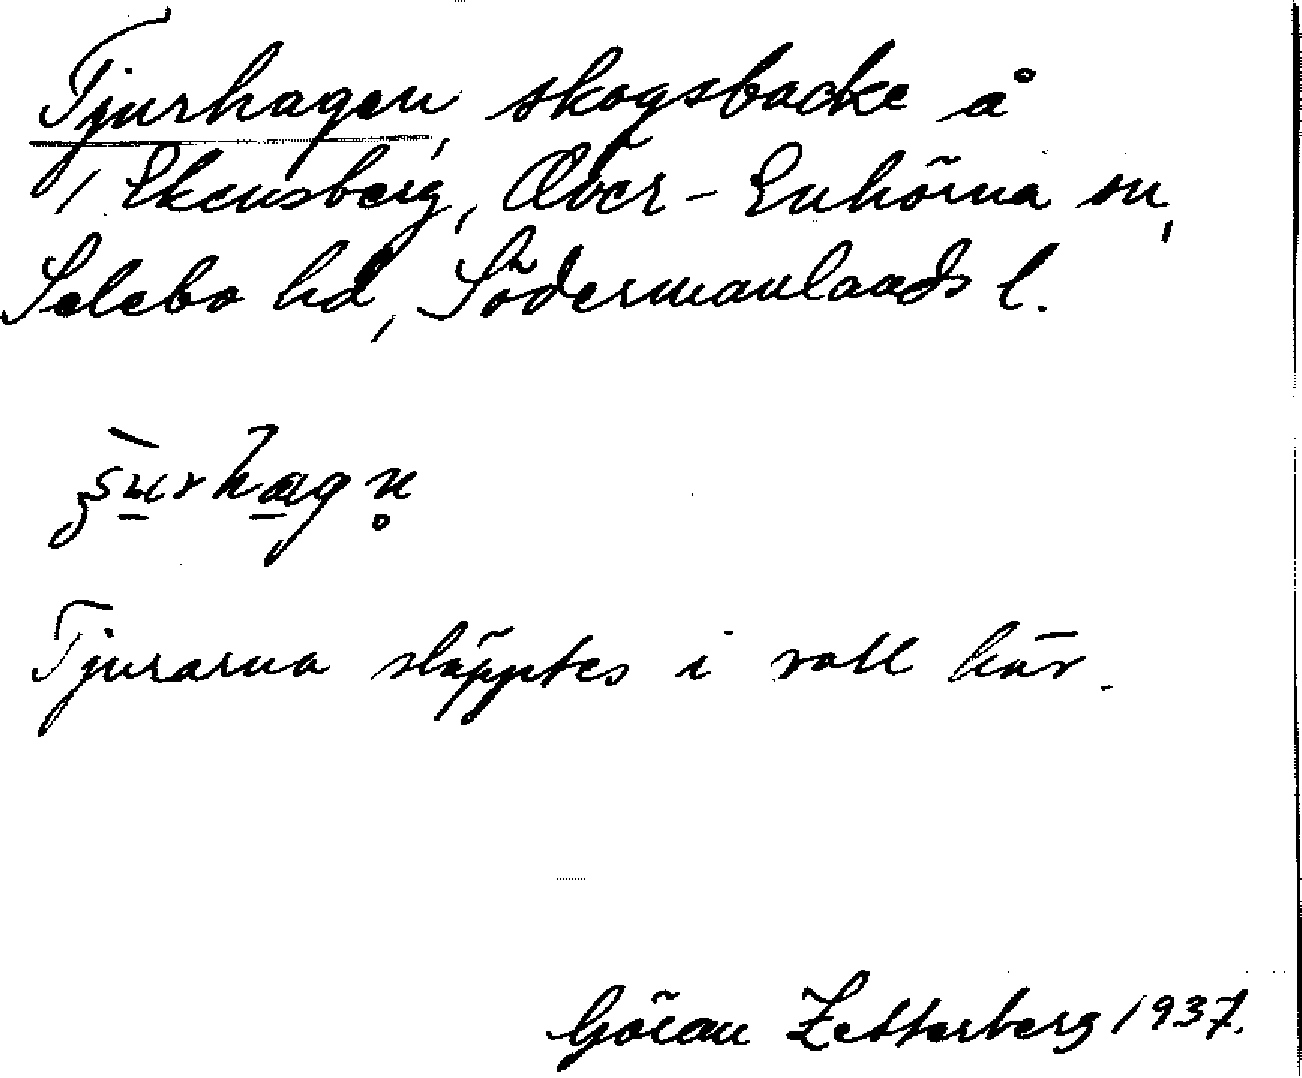 Tjurhagen, skogsbacke å
Ekensberg, Över-Enhörna sn,
Selebo hd, Södermanlands l.
Tjurarna släpptes i vall här.
Göran Zetterberg 1937.